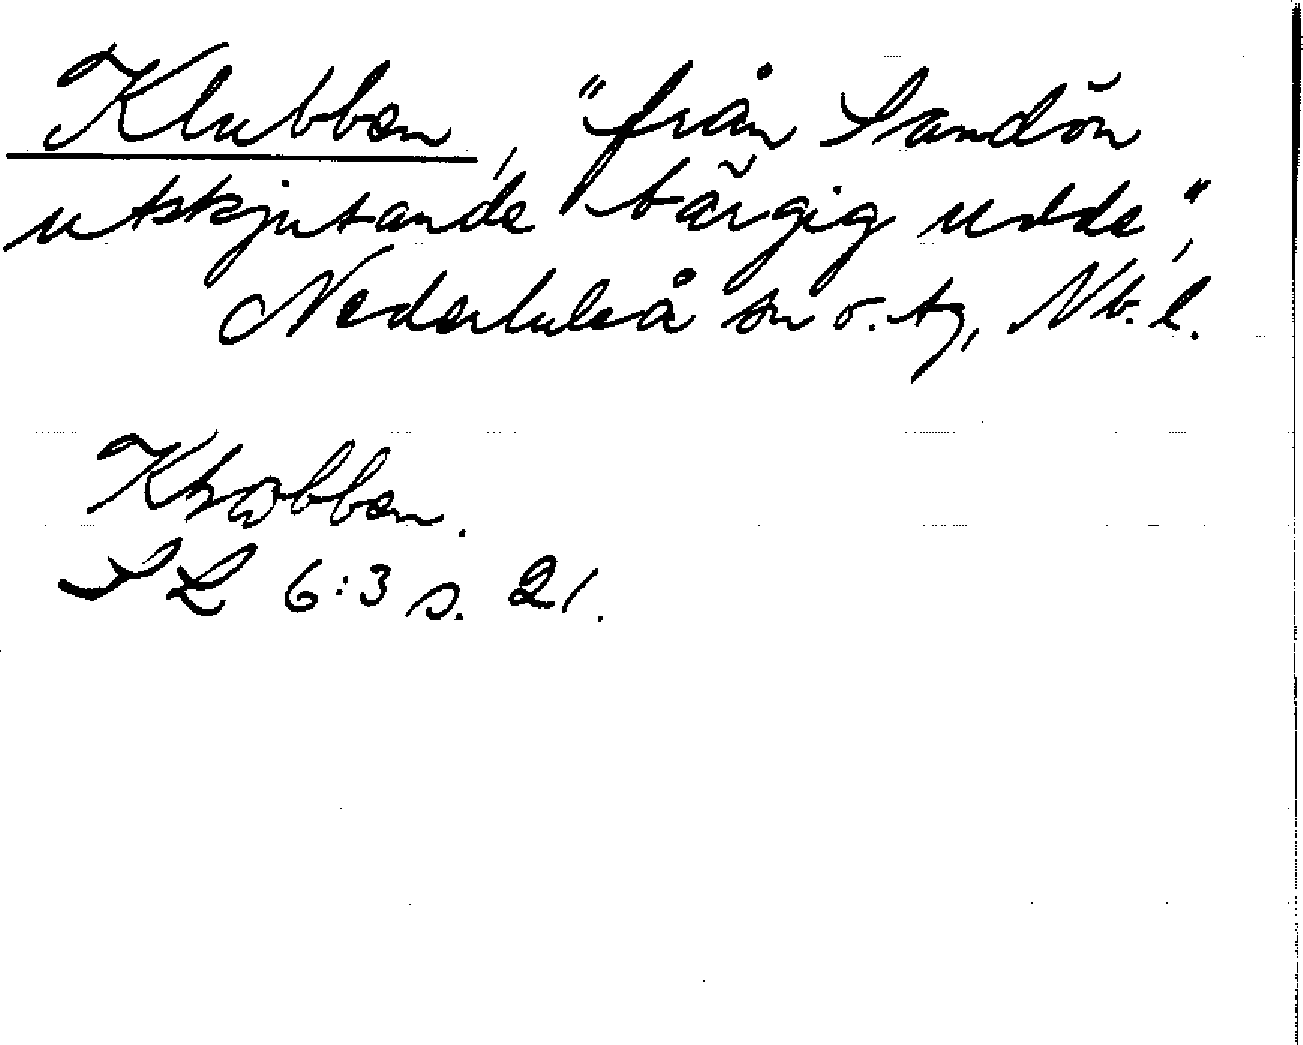 Klubben, "från Sandön
utskjutande bärgig udde",
Nederluleå sn o. tg, Nb. l.
SL 6:3 s. 21.